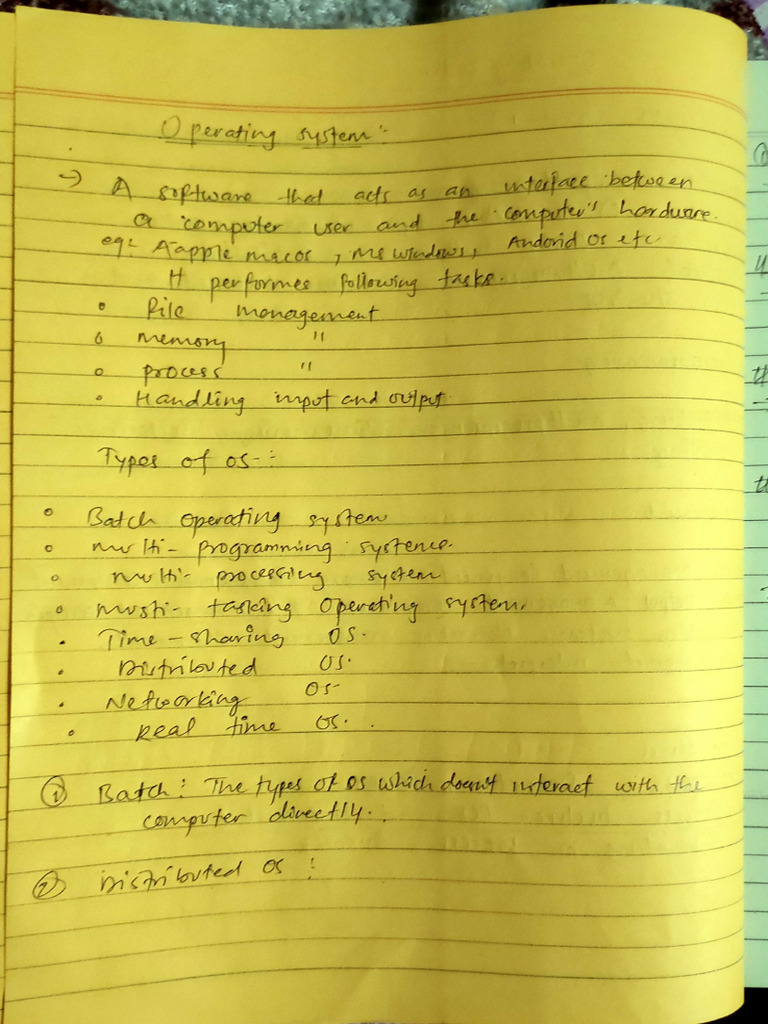 Operating system:-
→ A software that acts as an interface between
a computer user and the computer's hardware.
eg:- Aapple macos, Ms windows, Andorid os etc
It performes following tasks.
• File management
• memory "
• process "
• Handling input and output.
Types of os-:
• Batch operating system
• multi-programming systeme.
• multi- processing system
• musti- tasking operating system.
• Time-sharing OS.
• Distributed OS.
• Networking OS-
• Real time OS. .
① Batch: The types of os which doesn't interact with the
computer directly..
② Distributed OS :